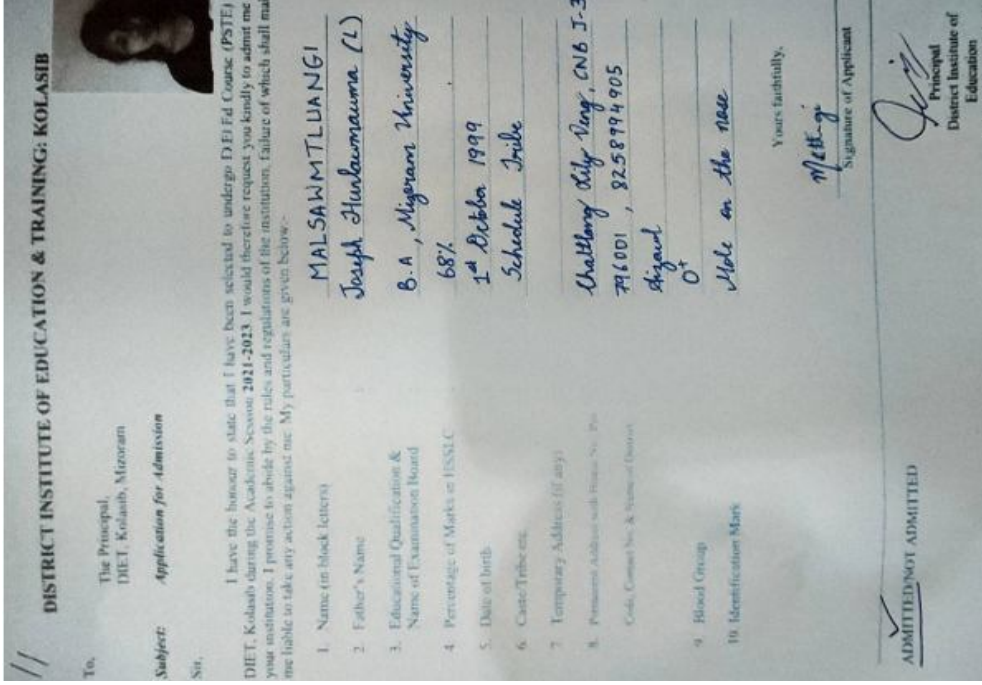 11
DISTRICT INSTITUTE OF EDUCATION & TRAINING: KOLASIB
To,
The Principal,
DIET, Kolasib, Mizoram
Subject: Application for Admission
Sir,
I have the honour to state that I have been selected to undergo D.El Ed Course (PSTE)
DIET, Kolasib during the Academic Session 2021-2023. I would therefore request you kindly to admit me
your institution. I promise to abide by the rules and regulations of the institution, failure of which shall
me liable to take any action against me. My particulars are given below:-
1. Name (in block letters) MALSAWMTLUANGI
2. Father's Name Joseph (L)
3. Educational Qualification &
Name of Examination Board B.A, Mizoram University
4 Percentage of Marks in HSSLC 68%
5. Date of birth 1st October 1999
6. Caste/Tribe etc Schedule Tribe
7 Temporary Address (if any)
8. Permanent Address with House No. Pin Chaltlang Lily Veng, CNB J-3
Code, Contact No. & Name of District 796001, 8258994905
Aizawl
9 Blood Group O+
10. Identification Mark Mole on the nose
Yours faithfully,
Signature of Applicant
ADMITTED/NOT ADMITTED
Principal
District Institute of
Education